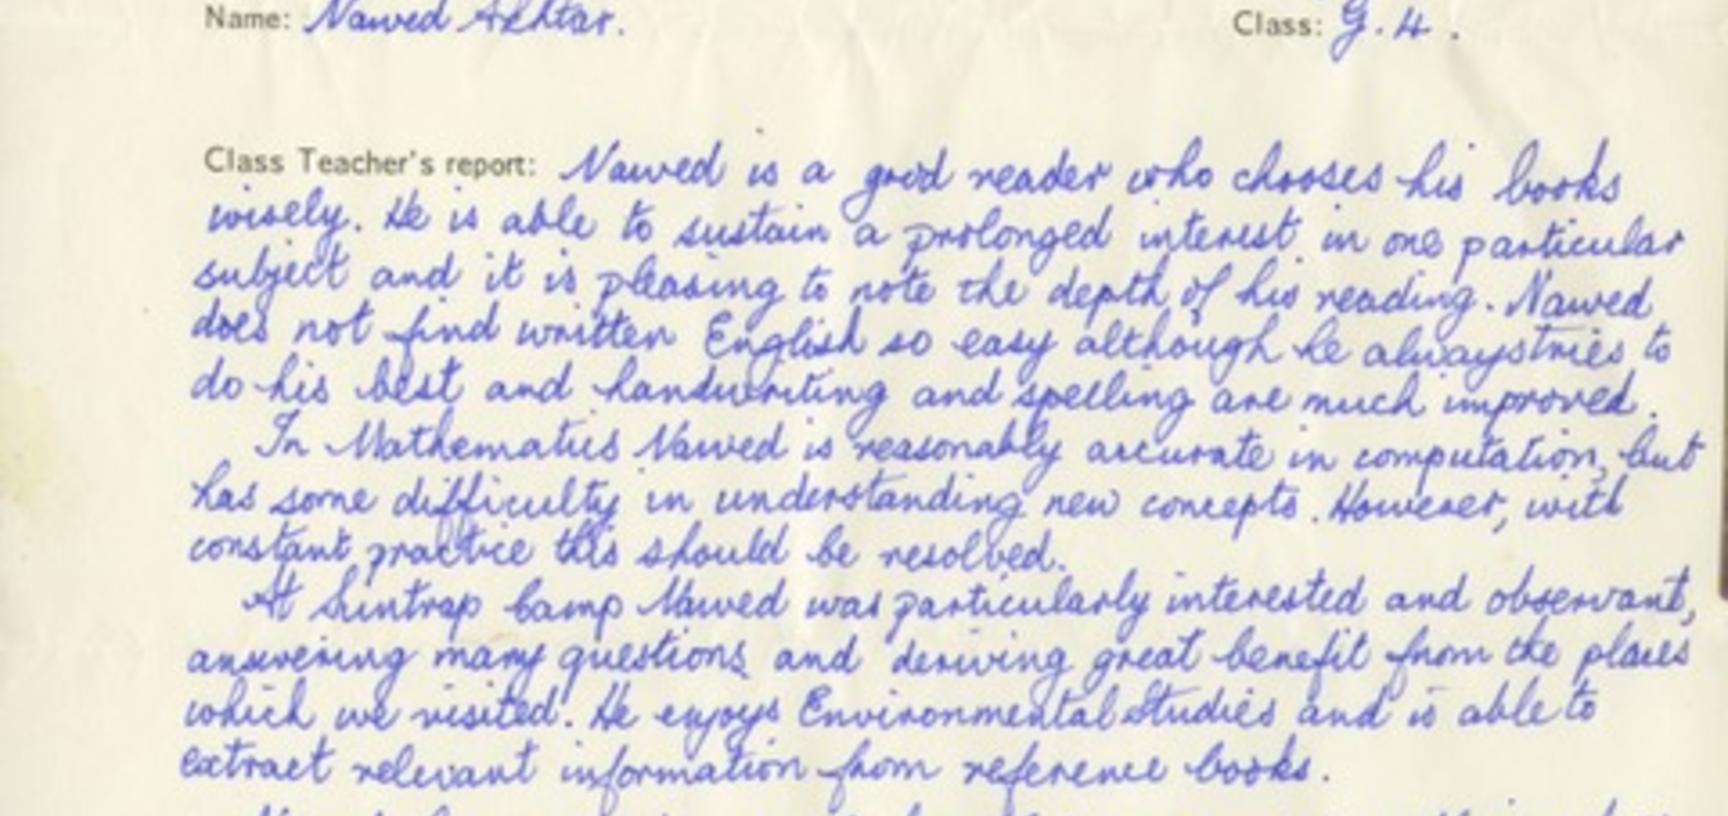 Name: Nawed Akhtar. Class: G.4.
Class Teacher's report: Nawed is a good reader who chooses his books
wisely. He is able to sustain a prolonged interest in one particular
subject and it is pleasing to note the depth of his reading. Nawed
does not find written English so easy although he always tries to
do his best and handwriting and spelling are much improved.
In Mathematics Nawed is reasonably accurate in computation, but
has some difficulty in understanding new concepts. However, with
constant practice this should be resolved.
At Suntrap Camp Nawed was particularly interested and observant,
answering many questions and deriving great benefit from the places
which we visited. He enjoys Environmental Studies and is able to
extract relevant information from reference books.